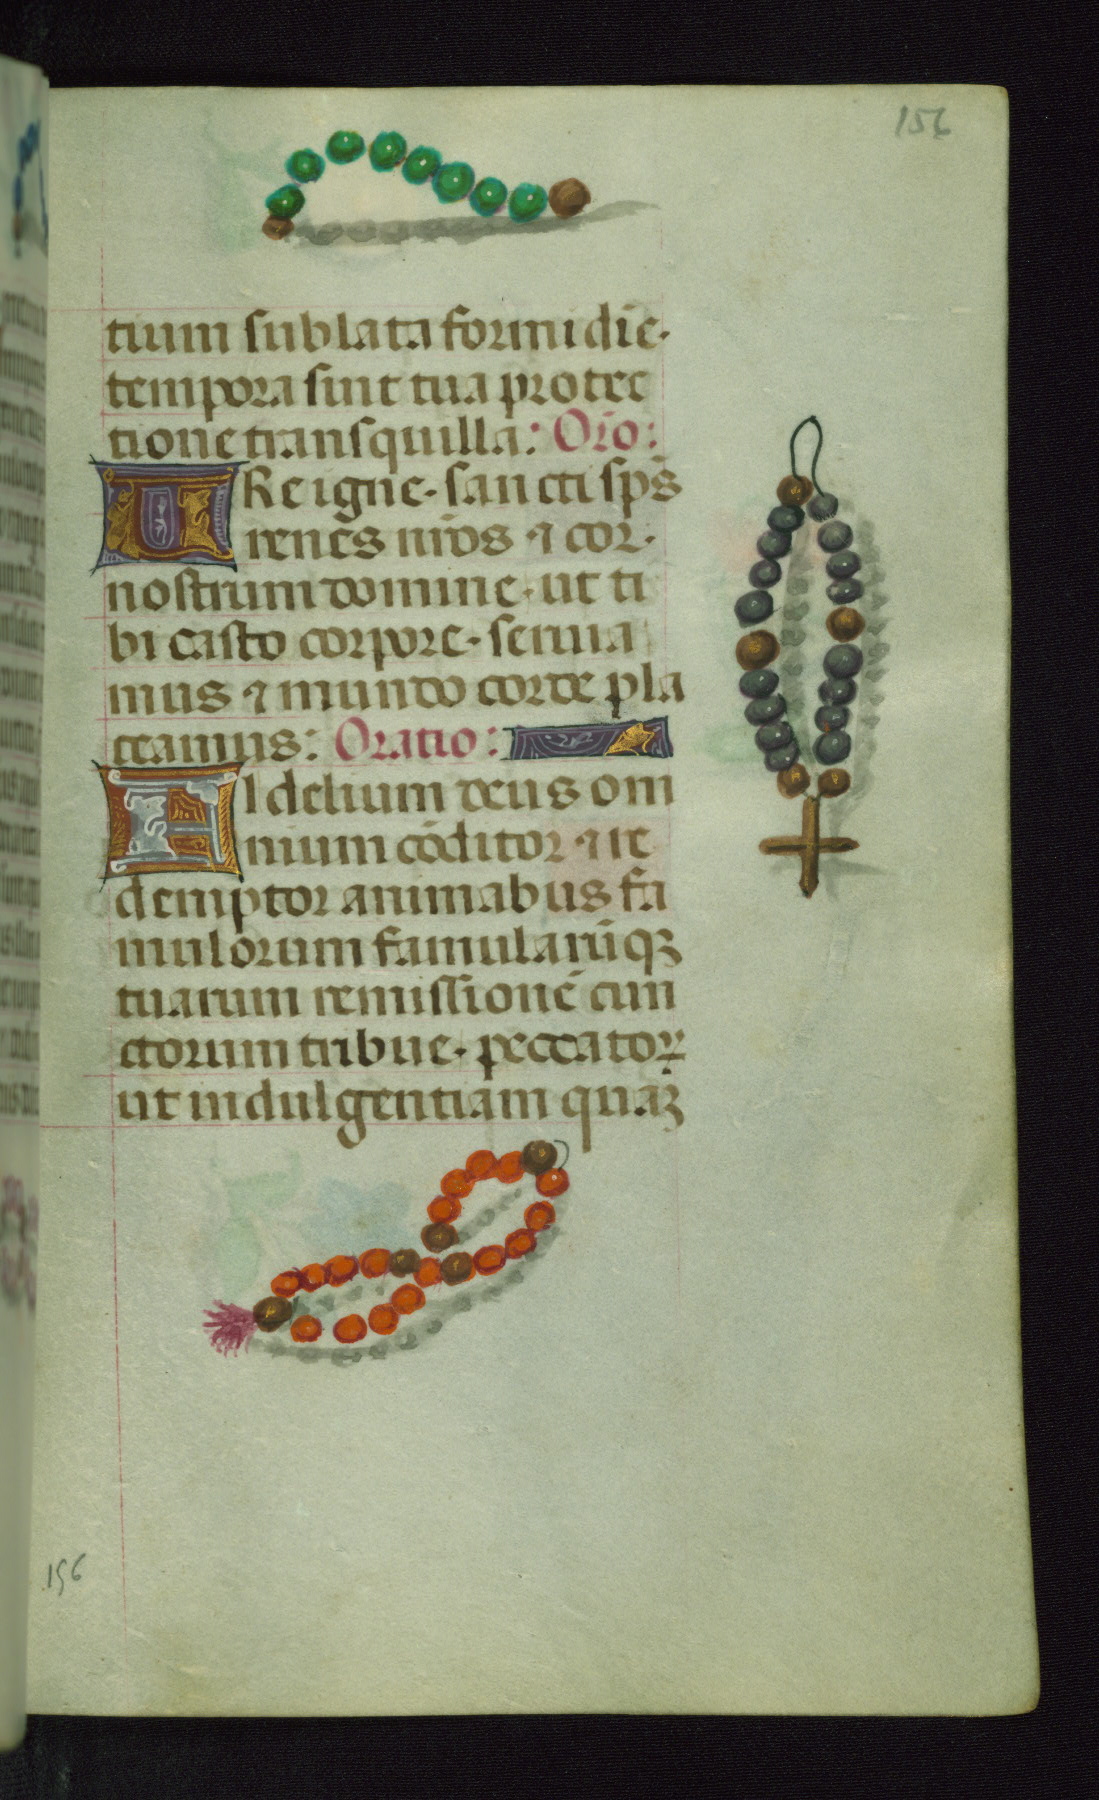 156
tium sublata formidīe·
tempora sint tua protec
tione transquilla: Orō:
URe igne· sancti sp̄s
renēs nr̄os · ⁊ cor·
nostrum domine· ut ti
bi casto corpore· seruia
mus ⁊ mundo corde pla
ceamus: Oratio:
FIdelium deus om
nium cōditor · ⁊ re
demptor animabus fa
mulorum famularūqꝫ
tuarum remissionē cun
ctorum tribue· peccatoꝝ
ut indulgentiam quaꝫ
196